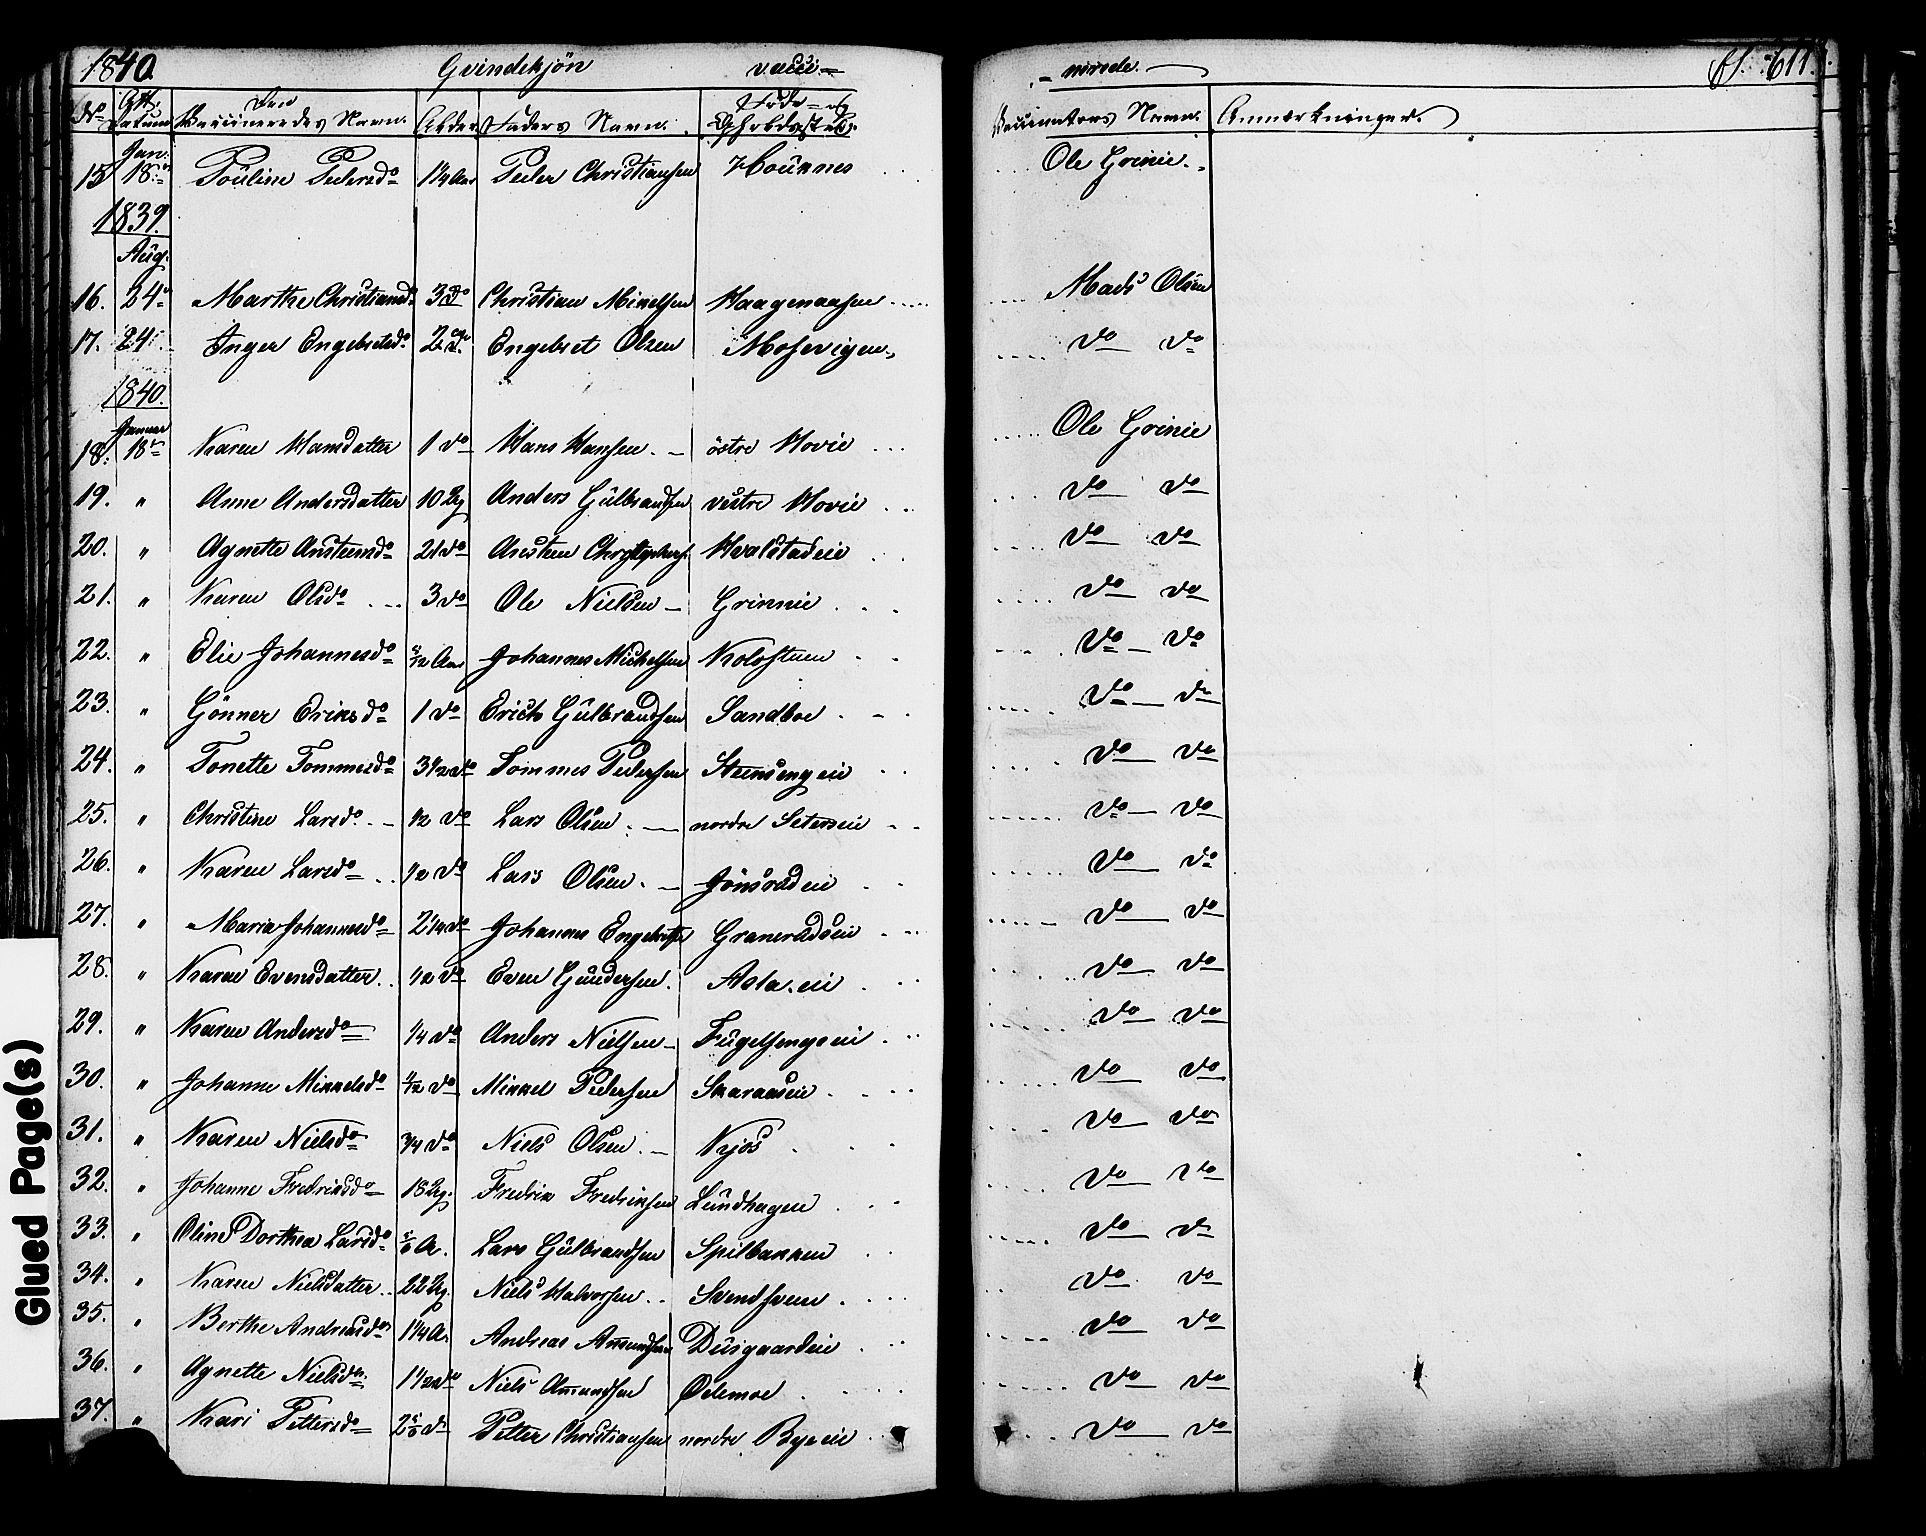 1840. Qvindekjön vacci=
= nerede. fl. 611.
No Att. Datum Den Vaccineredes Navn. Alder Faders Navn. Føde= og Opholdssted. Vaccinatørs Navn. Anmærkninger.
Jan.
15 18de Pouline Pedersdo 1 1/4 Aar Peder Christiansen Houknes Ole Grinie.
1839.
Aug.
16. 24 Marthe Christiansdo 3 do Christian Mikelsen Haagenaasen Mads Olsen
17. 24 Inger Engebretsdo 2 Engebret Olsen Mosevigen do do
1840.
Januar
18. 18de Karen Hansdatter 1 do Hans Hansen östre Hovie Ole Grinie
19. " Anne Andersdatter 10 Ug Anders Gulbrandsen vestre Hovie do do
20. " Agnette Anstensdo 21 do Ansten Hvalstadeie do do
21. " Karen Olsdo 3 do Ole Nielsen Grinnie do do
22. " Elie Johannesdo Aar Johannes Michelsen Kolostuen do do
23. " Gönner Eriksdo 1 do Erich Gulbrandsen Sandboe do do
24. " Tonette Tommesdo 3 1/2 do Tommes Pedersen Steensengeie do do
25. " Christine Larsdo 1/2 do Lars Olsen nordre Seterseie do do
26. " Karen Larsdo 1/2 do Lars Olsen Jönsrudeie do do
27. " Maria Johannesdo 2 1/4 do Johannes Engebretsen Granerudseie do do
28. " Karen Evensdatter 1/2 do Even Gundersen Asla.eie do do
29. " Karen Andersdo 1/4 do Anders Nielsen Fugelsengeeie do do
30. " Johanne Mikkelsdo do Mikkel Pedersen Skaraaseie do do
31. " Karen Nielsdo 3/4 do Niels Olsen Kjos do do
32. " Johanne Fredriksdo 18 Ug. Fredrik Fredriksen Lundhagen do do
33. " Oline Dorthea Larsdo 5/6 A. Lars Gulbrandsen Spilbakken do do
34. " Karen Nielsdatter 22 Ug. Niels Halvorsen Svendsveen do do
35. " Berthe Andreasdo 1 1/4 A. Andreas Amundsen Diisgaardeie do do
36. " Agnette Nielsdo 1 1/2 do Niels Amundsen Ødemoe do do
37. " Kari Pettersdo 2 5/6 do Petter Christiansen nordre Byeeie do do
Glued Page(s)